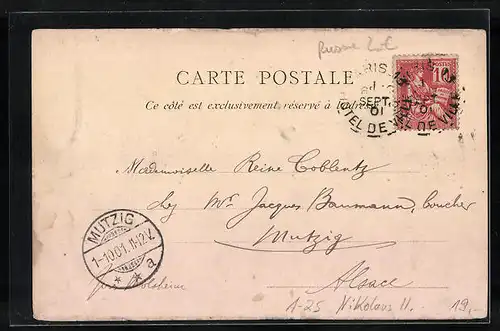 Russe
CARTE POSTALE
Ce côté est exclusivement réservé à l'adresse
POSTES
10
PARIS
SEPT.
01
HOTEL DE VILLE
Mademoiselle Reine Coblentz
chez Mr Jacques Baumann, boucher
Mutzig
MUTZIG
1-10.01.11-12V.
* * a
Molsheim
Alsace
1-25 Nikolaus II.
19,-